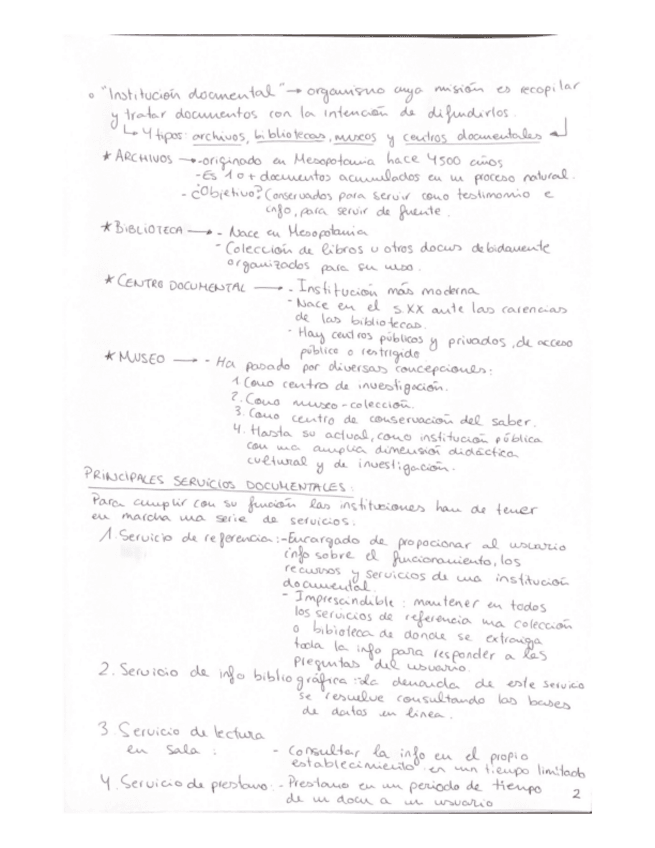 ° "Institución documental" → organismo cuya misión es recopilar
y tratar documentos con la intención de difundirlos.
↳ 4 tipos: archivos, bibliotecas, museos y centros documentales
* ARCHIVOS → - originado en Mesopotamia hace 4500 años
- Es 1 o + documentos acumulados en un proceso natural.
- ¿Objetivo? Conservados para servir como testimonio e
info, para servir de fuente.
* BIBLIOTECA → - Nace en Mesopotamia
- Colección de libros u otros docus debidamente
organizados para su uso.
* CENTRO DOCUMENTAL → - Institución más moderna
- Nace en el s.XX ante las carencias
de las bibliotecas.
- Hay centros públicos y privados, de acceso
público o restrigido
* MUSEO → - Ha pasado por diversas concepciones:
1. Como centro de investigación.
2. Como museo-colección.
3. Como centro de conservación del saber.
4. Hasta su actual, como institución pública
con una amplia dimensión didáctica
cultural y de investigación.
PRINCIPALES SERVICIOS DOCUMENTALES:
Para cumplir con su función las instituciones han de tener
en marcha una serie de servicios.
1. Servicio de referencia: - Encargado de propocionar al usuario
info sobre el funcionamiento, los
recursos y servicios de una institución
documental.
- Imprescindible: mantener en todos
los servicios de referencia una colección
o bibioteca de donde se extraiga
toda la info para responder a las
preguntas del usuario.
2. Servicio de info bibliográfica: la demanda de este servicio
se resuelve consultando las bases
de datos en linea.
3 Servicio de lectura
en sala: - Consultar la info en el propio
establecimiento en un tiempo limitado
4. Servicio de prestamo: - Prestamo en un periodo de tiempo
de un docu a un usuario
2